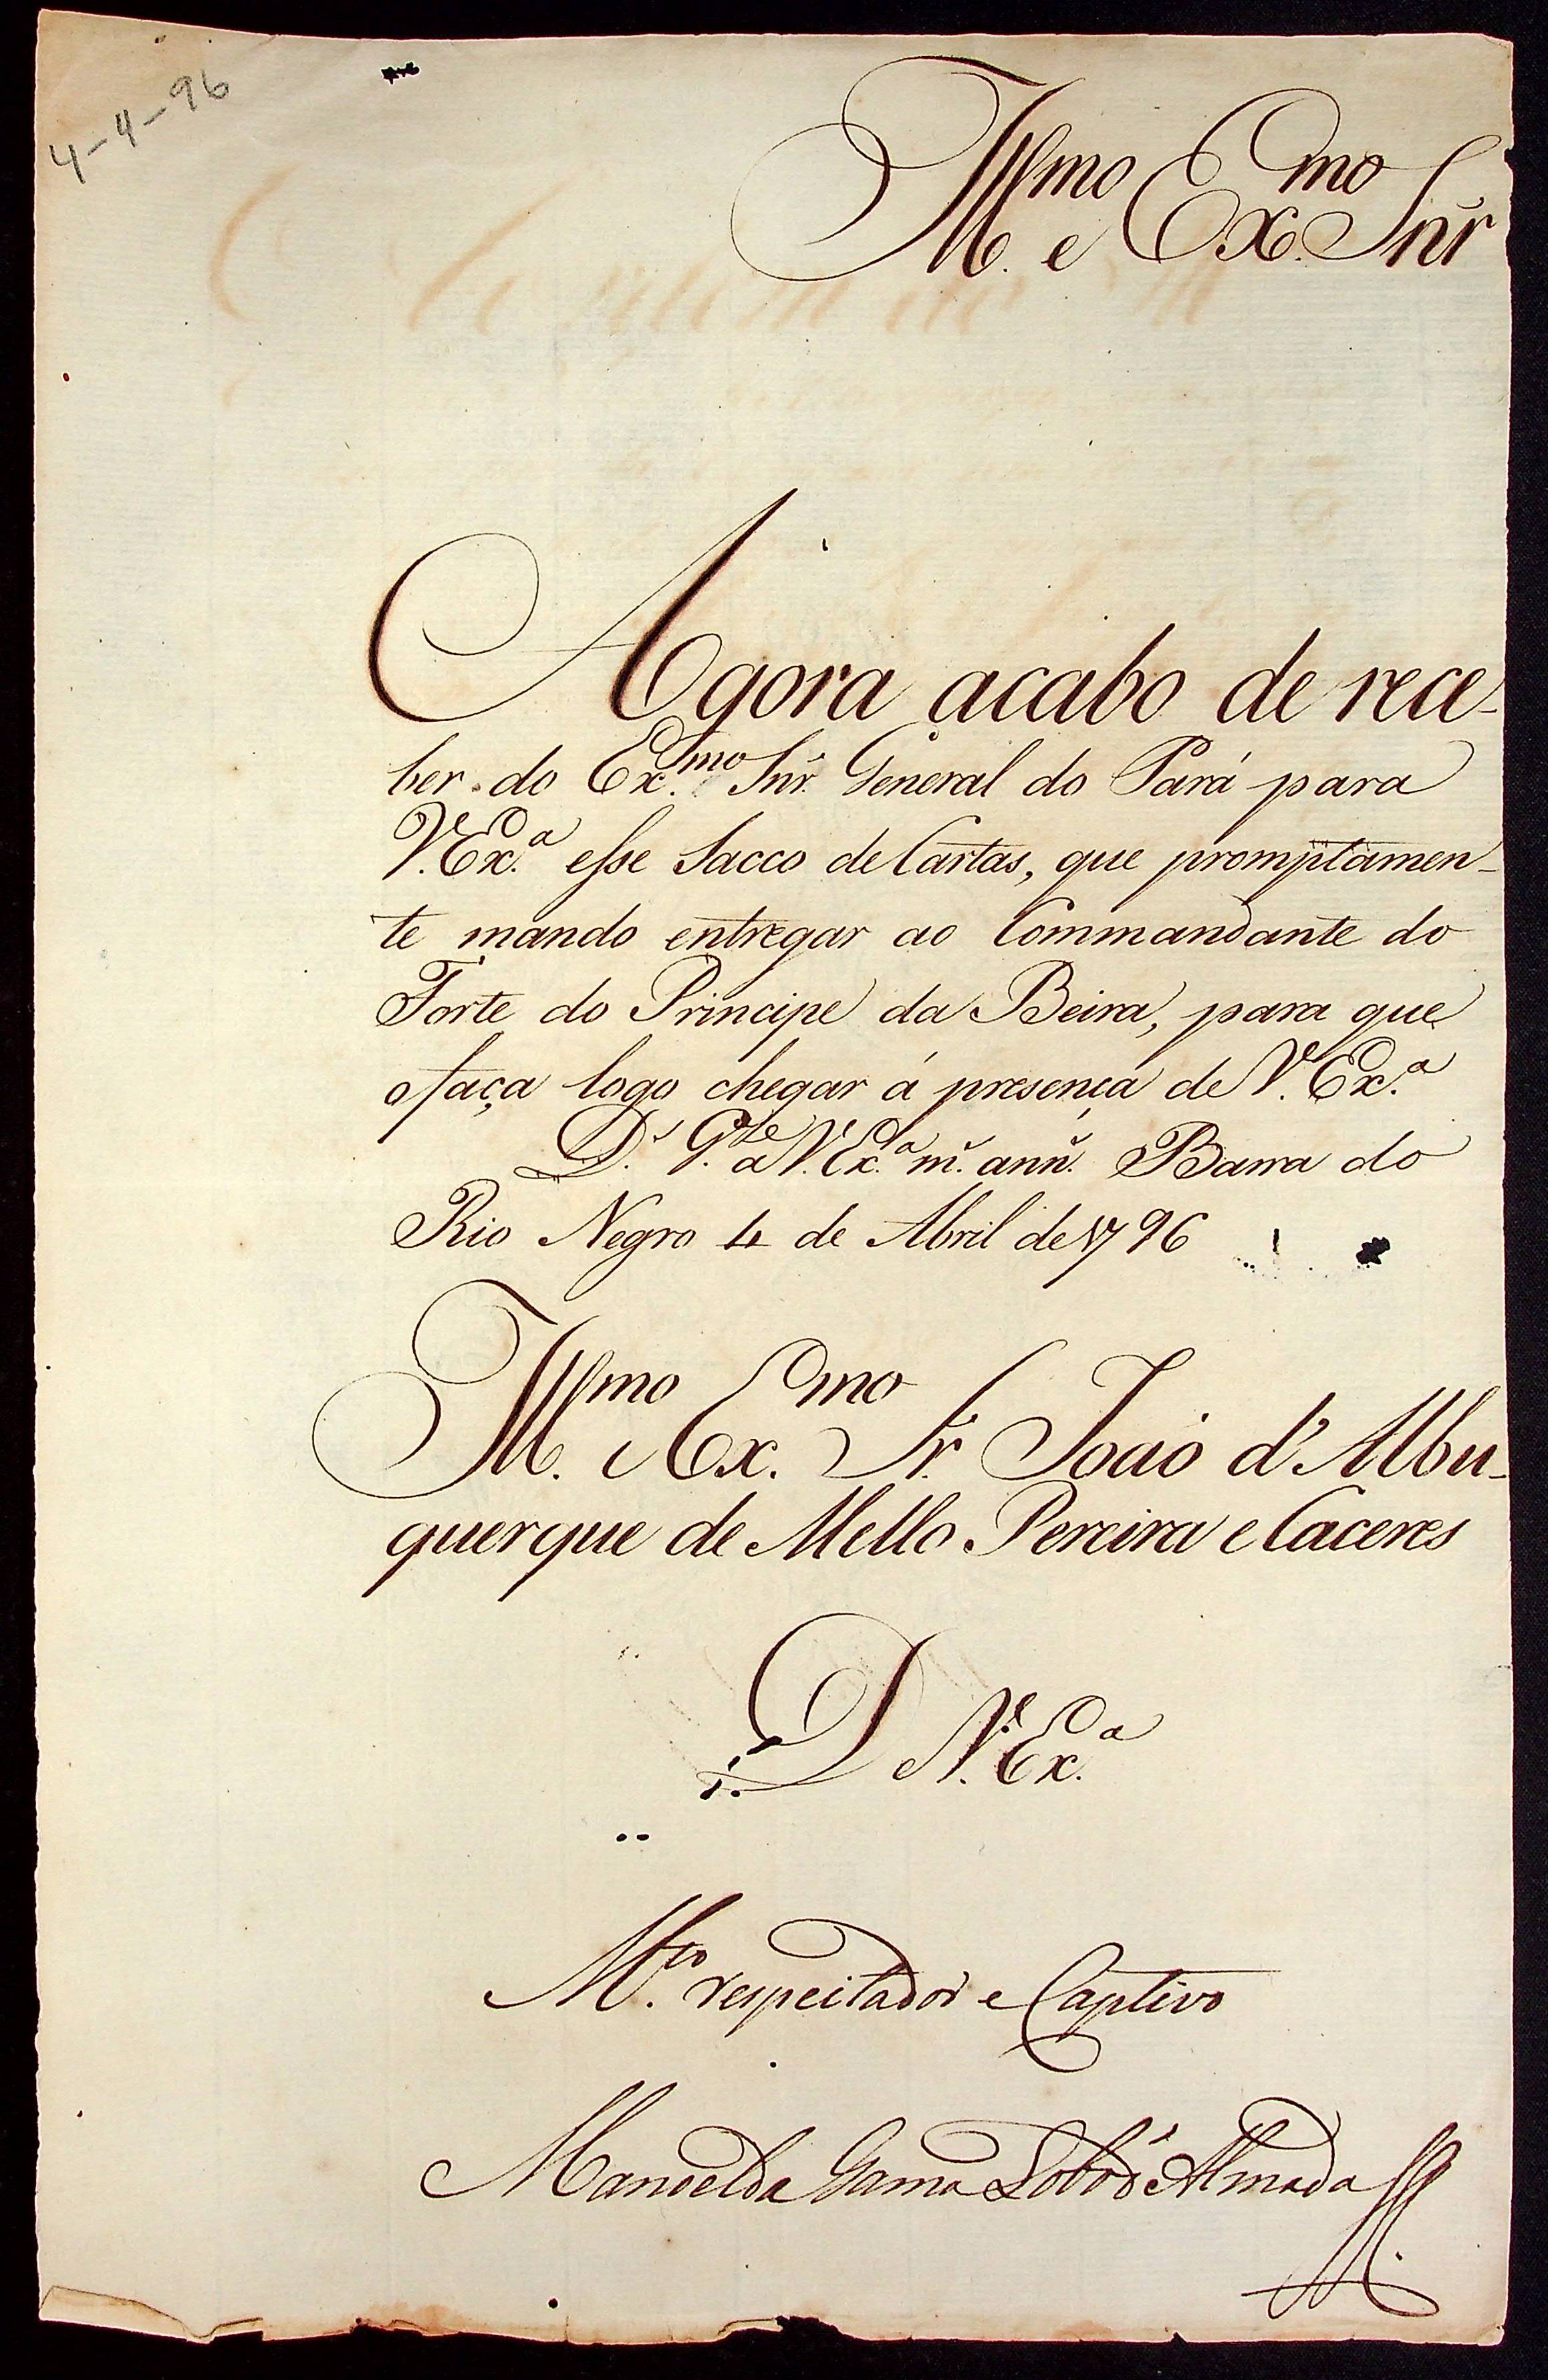 4-4-96
Ill.mo e Ex.mo Snr
Agora acabo de rece-
ber do Ex.mo Snr. General do Pará para
V. Ex.a esse Sacco de Cartas, que promptamen-
te mando entregar ao Commandante do
Forte do Principe da Beira, para que
o faça logo chegar á presença de V. Ex.a
D.s G.de a V. Ex.a m.s ann.s Barra do
Rio Negro 4 de Abril de 1796
Ill.mo e Ex.mo Sr. João d'Albu-
querque de Mello Pereira e Caceres
D V. Ex.a
M.to respeitador e Captivo
Manoel da Gama Lobo d'Almada